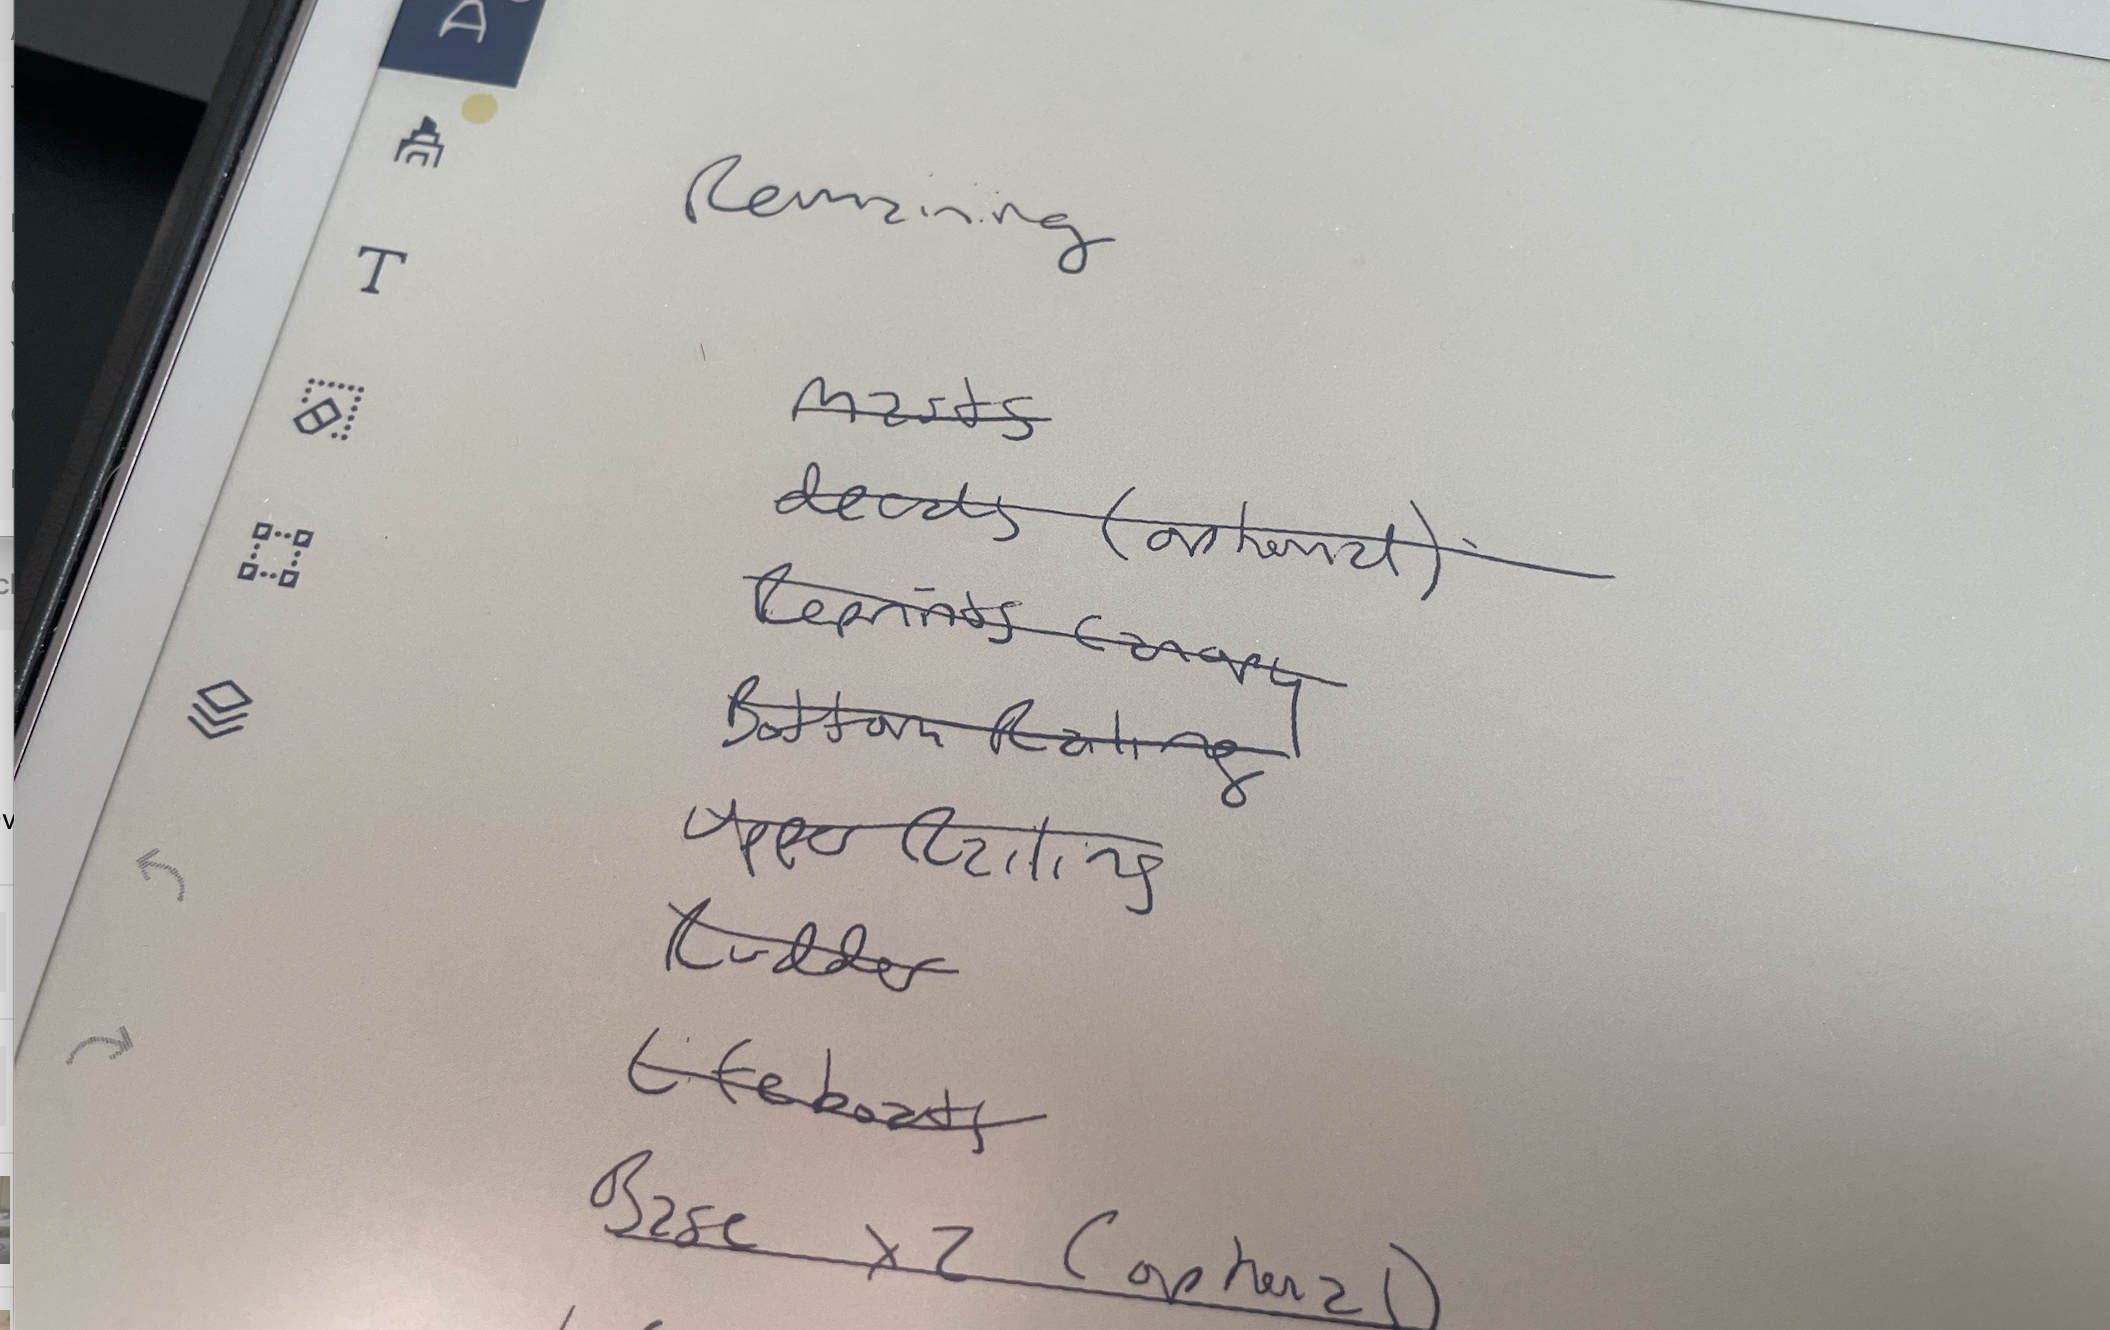 A
T
Remaining
Masts
decals (optional)
Reprints Canopy
Bottom Railing
Upper Railing
Rudder
Lifeboats
Base x2 (optional)